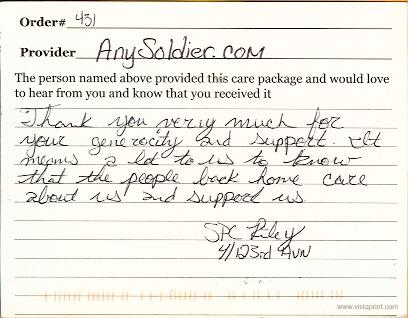 Order# 431
Provider AnySoldier.com
The person named above provided this care package and would love
to hear from you and know that you received it
Thank you very much for
your generocity and support. It
means a lot to us to know
that the people back home care
about us and support us
SPC Riley
4/123rd AVN
www.vistaprint.com